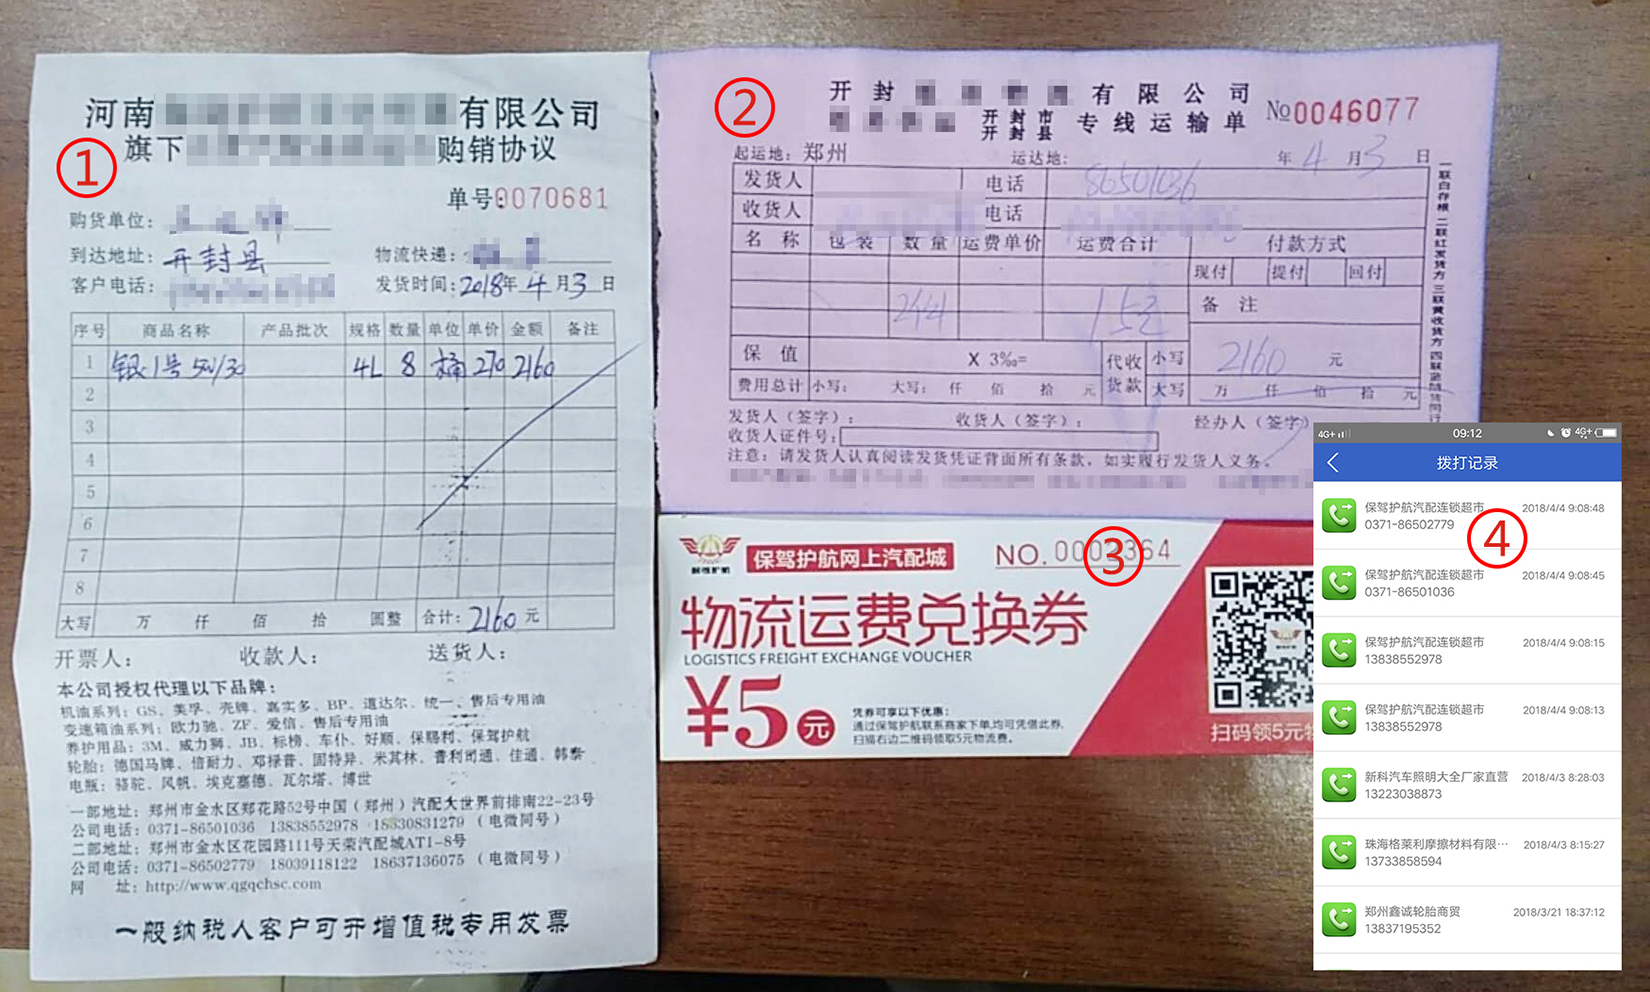 ①
河南 有限公司
旗下 购销协议
单号:0070681
购货单位:
到达地址: 开封县 物流快递:
客户电话: 发货时间:2018年4月3日
序号 商品名称 产品批次 规格 数量 单位 单价 金额 备注
1 银1号 5W/30 4L 8 桶 270 2160
2
3
4
5
6
7
8
大写 万 仟 佰 拾 圆整 合计: 2160 元
开票人: 收款人: 送货人:
本公司授权代理以下品牌:
机油系列: GS、美孚、壳牌、嘉实多、BP、道达尔、统一、售后专用油
变速箱油系列: 欧力驰、ZF、爱信、售后专用油
养护用品: 3M、威力狮、JB、标榜、车仆、好顺、保赐利、保驾护航
轮胎: 德国马牌、倍耐力、邓禄普、固特异、米其林、普利司通、佳通、韩泰
电瓶: 骆驼、风帆、埃克塞德、瓦尔塔、博世
一部地址: 郑州市金水区郑花路52号中国(郑州)汽配大世界前排南22-23号
公司电话: 0371-86501036 13838552978 18830831279 (电微同号)
二部地址: 郑州市金水区花园路111号天荣汽配城AT1-8号
公司电话: 0371-86502779 18039118122 18637136075 (电微同号)
网 址: http://www.qgqchsc.com
一般纳税人客户可开增值税专用发票
②
开封 有限公司
开封市
开封县 专线运输单
№0046077
起运地: 郑州 运达地: 年 4 月 3 日
发货人 电话 86501036
收货人 电话
名称 包装 数量 运费单价 运费合计 付款方式
现付 提付 回付
备注
保值 X 3‰= 代收货款 小写 2160 元
费用总计 小写: 大写: 仟 佰 拾 元 大写 万 仟 佰 拾 元
发货人(签字): 收货人(签字): 经办人(签字)
收货人证件号:
注意: 请发货人认真阅读发货凭证背面所有条款，如实履行发货人义务。
③
保驾护航网上汽配城
NO.
物流运费兑换券
LOGISTICS FREIGHT EXCHANGE VOUCHER
¥5元
凭券可享以下优惠:
通过保驾护航联系商家下单,均可凭借此券,
扫描右边二维码领取5元物流费。
扫码领5元
4G+ 09:12 4G+
拨打记录
④
保驾护航汽配连锁超市 2018/4/4 9:08:48
0371-86502779
保驾护航汽配连锁超市 2018/4/4 9:08:45
0371-86501036
保驾护航汽配连锁超市 2018/4/4 9:08:15
13838552978
保驾护航汽配连锁超市 2018/4/4 9:08:13
13838552978
新科汽车照明大全厂家直营 2018/4/3 8:28:03
13223038873
珠海格莱利摩擦材料有限… 2018/4/3 8:15:27
13733858594
郑州鑫诚轮胎商贸 2018/3/21 18:37:12
13837195352